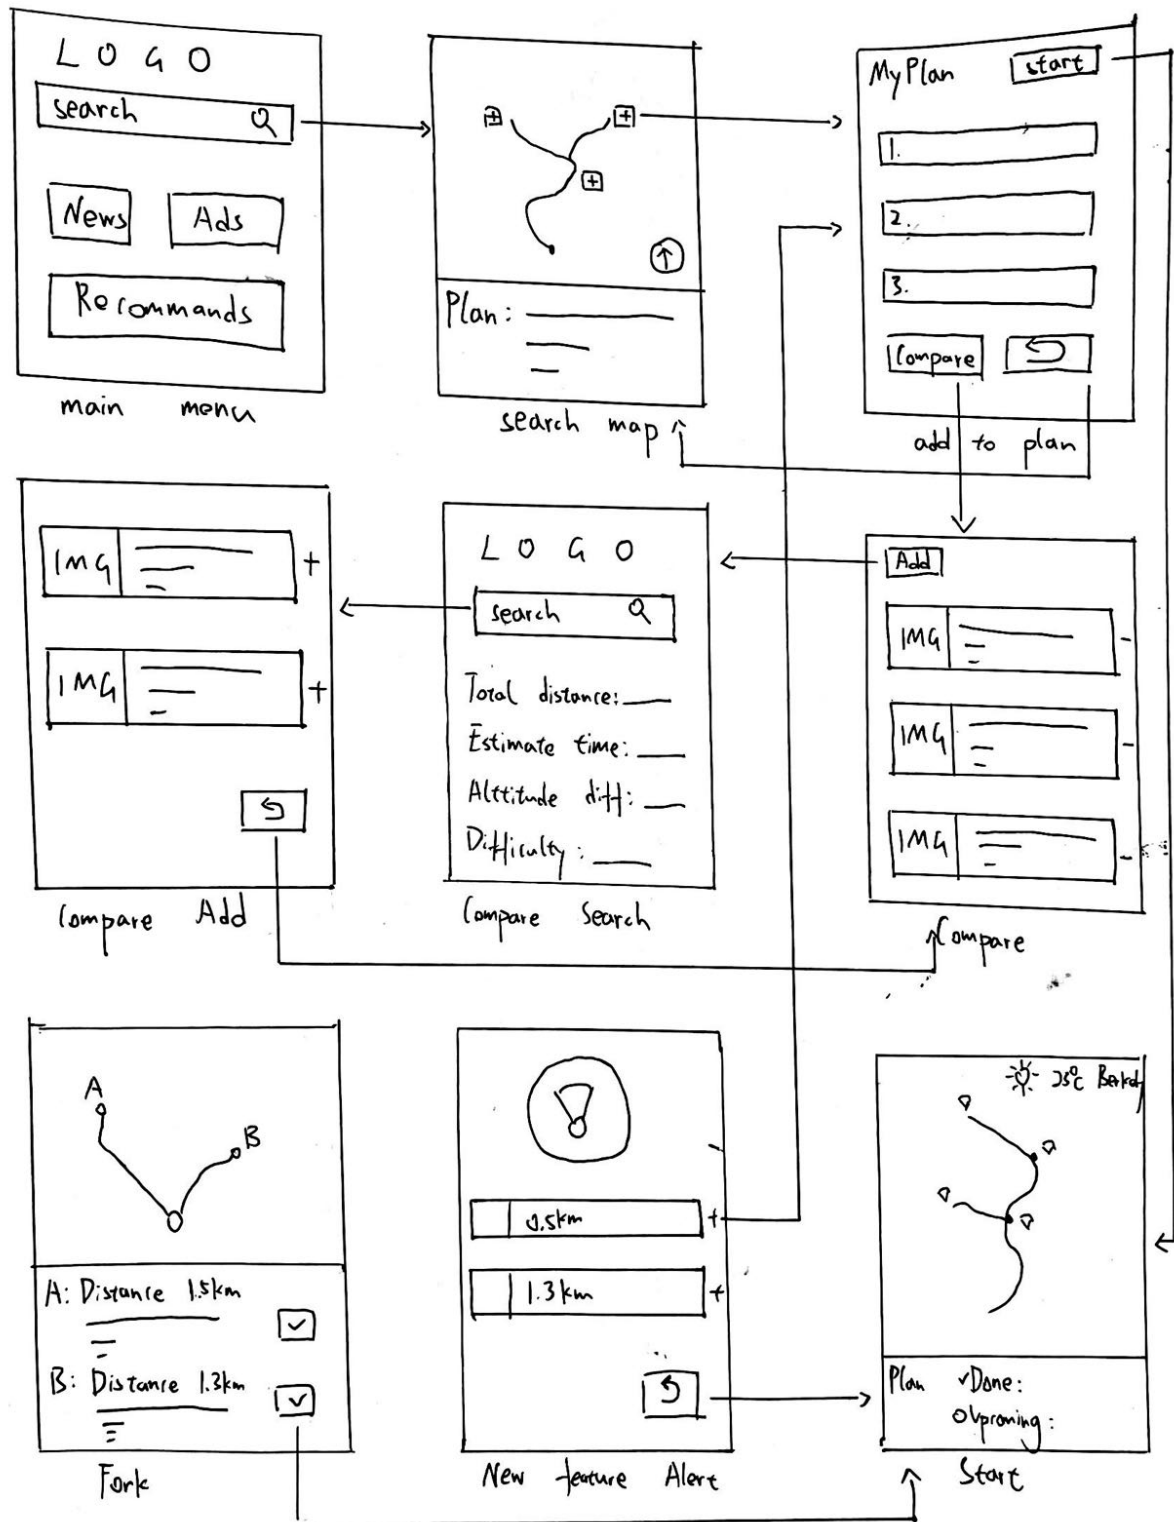 L O G O
search
News
Ads
Recommands
main menu
Plan:
search map
My Plan
start
1.
2.
3.
Compare
add to plan
IMG
+
IMG
+
Compare Add
L O G O
search
Total distance:
Estimate time:
Alttitude diff:
Difficulty:
Compare Search
Add
IMG
-
IMG
-
IMG
-
Compare
A
B
A: Distance 1.5km
B: Distance 1.3km
Fork
0.5km
+
1.3km
+
New feature Alert
°C
Plan ✓Done:
Start